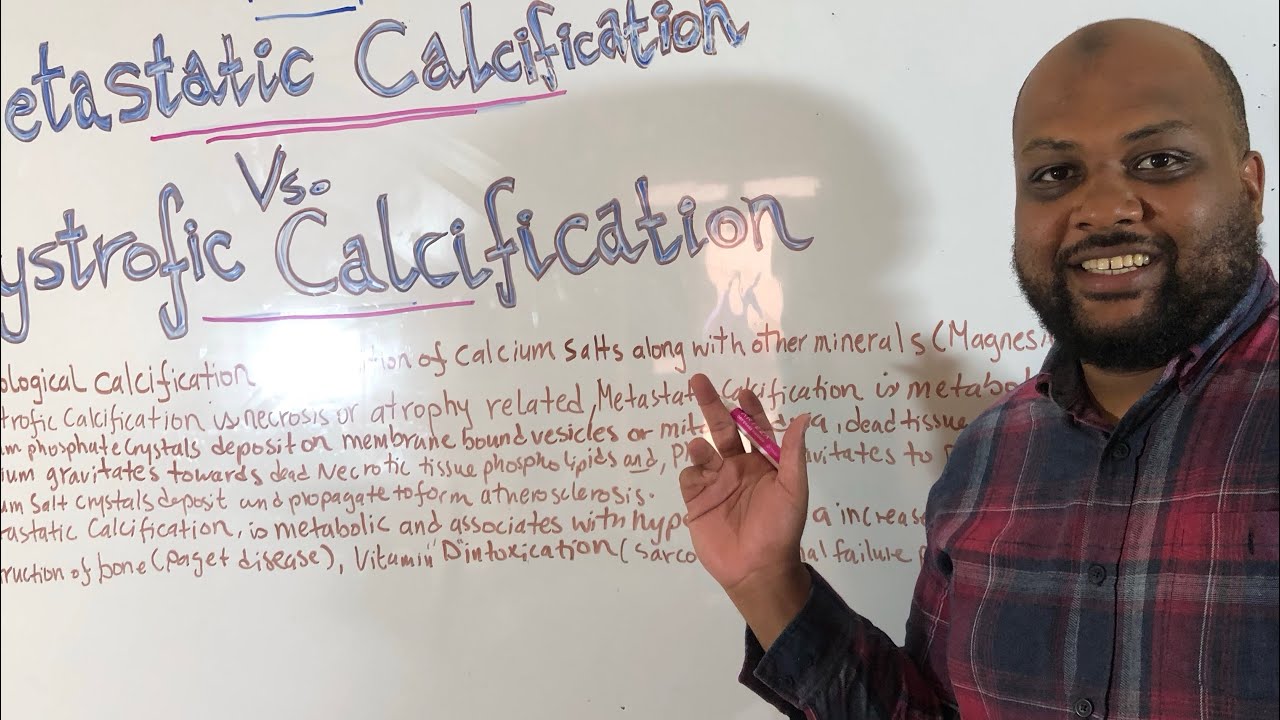 etastatic Calcification
Vs.
ystrofic Calcification
ological calcification tion of calcium salts along with other minerals (Magnesi
trofic Calcification is necrosis or atrophy related, Metastat Calcification is metabol
um phosphate crystals deposit on membrane bound vesicles or mit a, dead tissue
ium gravitates towards dead Necrotic tissue phospholipids and, Ph avitates to
um salt crystals deposit and propagate to form atherosclerosis.
tastatic Calcification, is metabolic and associates with hyp a increase
ruction of bone (paget disease), Vitamin "D" intoxication (sarco nal failure